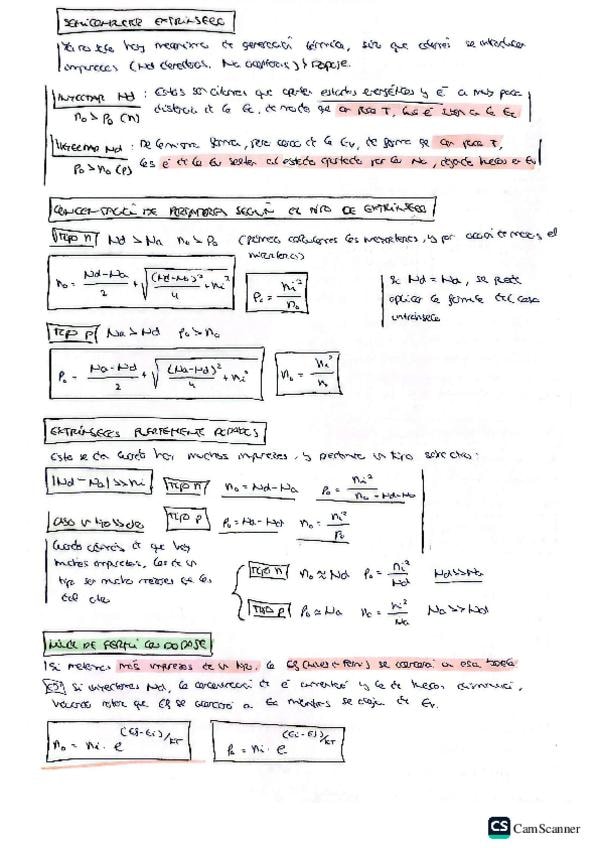 SEMICONDUCTOR EXTRÍNSECO
Ya no solo hay mecanismo de generación térmica, sino que además se introducen
impurezas (Nd donadoras, Na aceptoras) → Dopaje.
INYECTAR Nd : Estos son átomos que aportan estados energéticos y e⁻ a muy poca
n₀ > p₀ (n) distancia de la Ec, de modo que con poca T, los e⁻ a la Ec
INYECTAR Na : De la misma forma, pero cerca de la Ev, de forma que con poca T,
p₀ > n₀ (p) los e⁻ de la Ev al estado aportado por las Na, dejando huecos en Ev
CONCENTRACIÓN DE PORTADORES SEGÚN EL TIPO DE EXTRÍNSECO
TIPO n Nd > Na n₀ > p₀ (primero calculamos los mayoritarios, y por acción de masas el
minoritario)
n₀ = (Nd-Na)/2 + √((Nd-Na)²/4 + ni²) p₀ = ni²/n₀
Si Nd = Na, se puede
aplicar la fórmula del caso
intrínseco
TIPO p Na > Nd p₀ > n₀
p₀ = (Na-Nd)/2 + √((Na-Nd)²/4 + ni²)
EXTRÍNSECOS FUERTEMENTE DOPADOS
Esto se da cuando hay muchas impurezas, y predomina un tipo sobre otro:
|Nd - Na| >> ni TIPO n n₀ = Nd - Na p₀ = ni²/n₀
TIPO p p₀ = Na - Nd n₀ = ni²/p₀
Cuando además de que hay
muchas impurezas, las de un
tipo son mucho mayores que las
del otro
TIPO n n₀ ≈ Nd p₀ = ni²/Nd Nd >> Na
TIPO p p₀ ≈ Na n₀ = ni²/Na Na >> Nd
NIVEL DE FERMI CON DOPAJE
Si metemos más impurezas de un tipo, la Ef (nivel de Fermi) se acercará a esa banda
Ej Si inyectamos Nd, la concentración de e⁻ aumentará y la de huecos disminuirá,
haciendo notar que Ef se acercará a Ec mientras se aleja de Ev.
n₀ = ni · e^(Ef-Ei)/KT p₀ = ni · e^(Ei-Ef)/KT
CS CamScanner